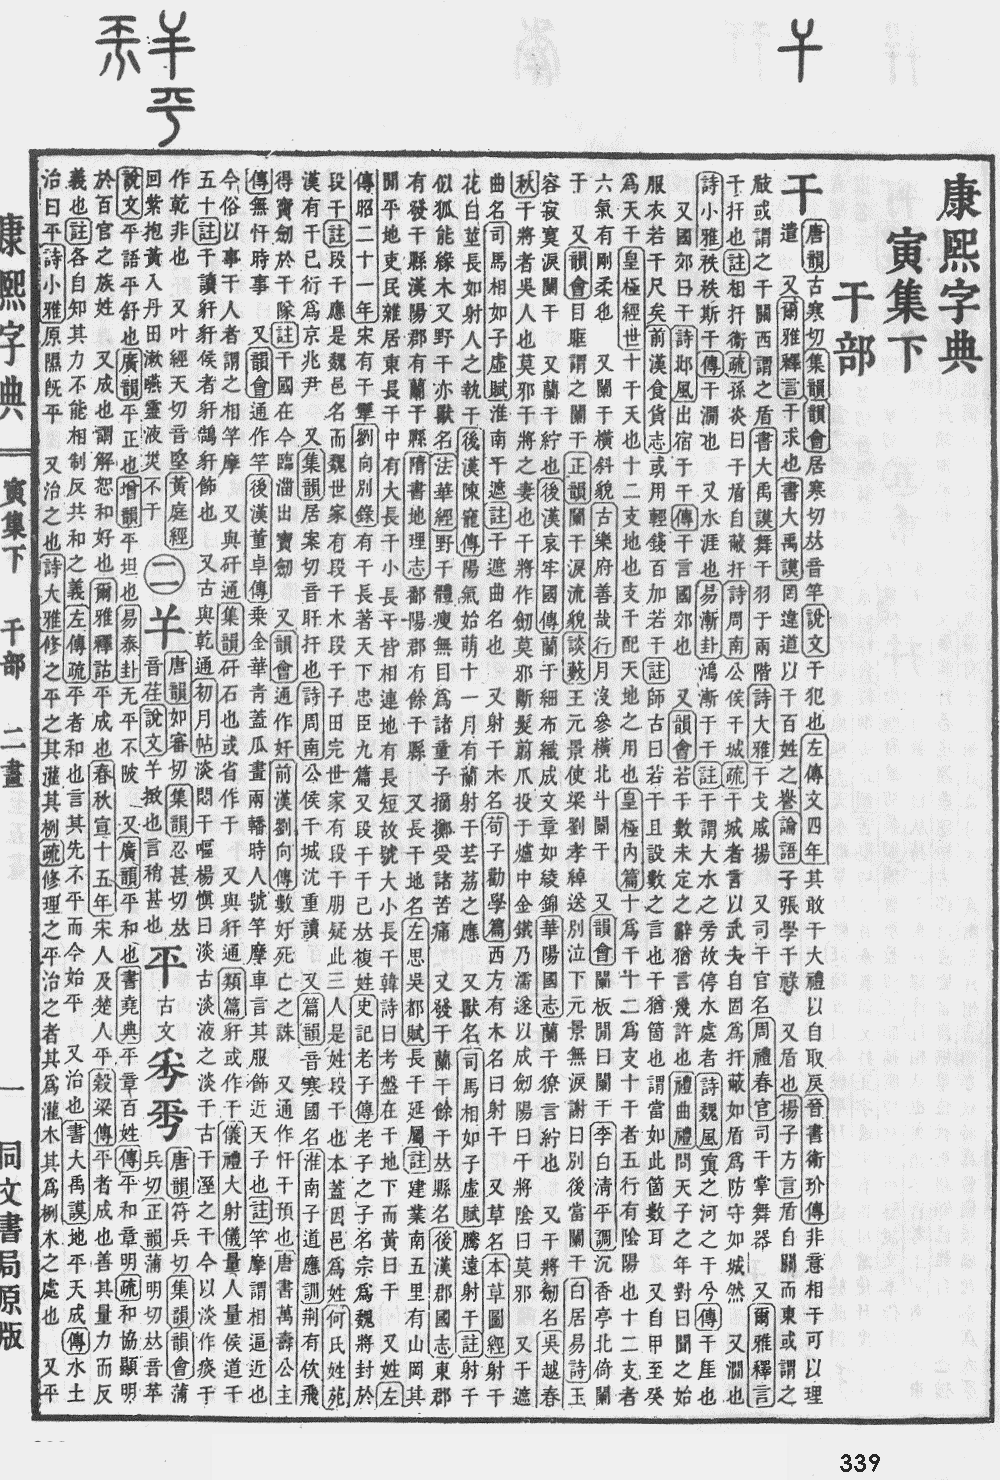 康熙字典
寅集下
干部
干
唐韻古寒切集韻韻會居寒切𠀤音竿說文干犯也左傳文四年其敢干大禮以自取戾晉書衞玠傳非意相干可以理
遣　又爾雅釋言干求也書大禹謨罔違道以干百姓之譽論語子張學干祿　又盾也揚子方言盾自關而東或謂之
瞂或謂之干關西謂之盾書大禹謨舞干羽于兩階詩大雅干戈戚揚　又司干官名周禮春官司干掌舞器　又爾雅釋言
干扞也註相扞衞疏孫炎曰干盾自蔽扞詩周南公侯干城疏干城者言以武夫自固爲扞蔽如盾爲防守如城然　又澗也
詩小雅秩秩斯干傳干澗也　又水涯也易漸卦鴻漸于干註干謂大水之旁故停水處者詩魏風寘之河之干兮傳干厓也
又國郊曰干詩邶風出宿于干傳干言國郊也　又韻會若干數未定之辭猶言幾許也禮曲禮問天子之年對曰聞之始
服衣若干尺矣前漢食貨志或用輕錢百加若干註師古曰若干且設數之言也干猶箇也謂當如此箇數耳　又自甲至癸
爲天干皇極經世十干天也十二支地也支干配天地之用也皇極內篇十爲干十二爲支十干者五行有陰陽也十二支者
六氣有剛柔也　又闌干橫斜貌古樂府善哉行月沒參橫北斗闌干　又韻會闌板閒曰闌干李白清平調沉香亭北倚闌
干　又韻會目眶謂之闌干正韻闌干淚流貌談藪王元景使梁劉孝綽送別泣下元景無淚謝曰別後當闌干白居易詩玉
容寂寞淚闌干　又蘭干紵也後漢哀牢國傳蘭干細布織成文章如綾錦華陽國志蘭干獠言紵也　又干將劒名吳越春
秋干將者吳人也莫邪干將之妻也干將作劒莫邪斷髮翦爪投于爐中金鐵乃濡遂以成劒陽曰干將陰曰莫邪　又干遮
曲名司馬相如子虛賦淮南干遮註干遮曲名也　又射干木名荀子勸學篇西方有木名曰射干　又草名本草圖經射干
花白莖長如射人之執干後漢陳寵傳陽氣始萌十一月有蘭射干芸荔之應　又獸名司馬相如子虛賦騰遠射干註射干
似狐能緣木又野干亦獸名法華經野干體瘦無目爲諸童子摘擲受諸苦痛　又發干蘭干餘干𠀤縣名後漢郡國志東郡
有發干縣漢陽郡有蘭干縣隋書地理志鄱陽郡有餘干縣　又長干地名左思吳都賦長干延屬註建業南五里有山岡其
閒平地吏民雜居東長干中有大長干小長干皆相連地有長短故號大小長干韓詩曰考盤在干地下而黃曰干　又姓左
傳昭二十一年宋有干犫劉向別錄有干長著天下忠臣九篇　又段干干已𠀤複姓史記老子傳老子之子名宗爲魏將封於
段干註段干應是魏邑名而魏世家有段干木段干子田完世家有段干朋疑此三人是姓段干也本蓋因邑爲姓何氏姓苑
漢有干已衍爲京兆尹　又集韻居案切音旰扞也詩周南公侯干城沈重讀　又篇韻音寒國名淮南子道應訓荆有佽飛
得寶劒於干隊註干國在今臨淄出寶劒　又韻會通作奸前漢劉向傳數奸死亡之誅　又通作忓干預也唐書萬壽公主
傳無忓時事　又韻會通作竿後漢董卓傳乗金華靑蓋瓜畫兩轓時人號竿摩車言其服飾近天子也註竿摩謂相逼近也
今俗以事干人者謂之相竿摩　又與矸通集韻矸石也或省作干　又與豻通類篇豻或作干儀禮大射儀量人量侯道干
五十註干讀豻豻侯者豻鵠豻飾也　又古與乾通初月帖淡悶干嘔楊愼曰淡古淡液之淡干古干溼之干今以淡作痰干
作乾非也　又叶經天切音堅黃庭經
回紫抱黃入丹田漱嚥靈液災不干
二
𢆉
唐韻如審切集韻忍甚切𠀤
音荏說文𢆉撖也言稍甚也
平
古文
兵切正韻蒲明切𠀤音苹
唐韻符兵切集韻韻會蒲
說文平語平舒也廣韻平正也增韻平坦也易泰卦无平不陂　又廣韻平和也書堯典平章百姓傳平和章明疏和協顯明
於百官之族姓　又成也謂解恕和好也爾雅釋詁平成也春秋宣十五年宋人及楚人平穀梁傳平者成也善其量力而反
義也註各自知其力不能相制反共和之義左傳疏平者和也言其先不平而今始平　又治也書大禹謨地平天成傳水土
治曰平詩小雅原隰旣平　又治之也詩大雅修之平之其灌其栵疏修理之平治之者其爲灌木其爲栵木之處也　又平
康熙字典
寅集下　干部　二畫
一
同文書局原版
339